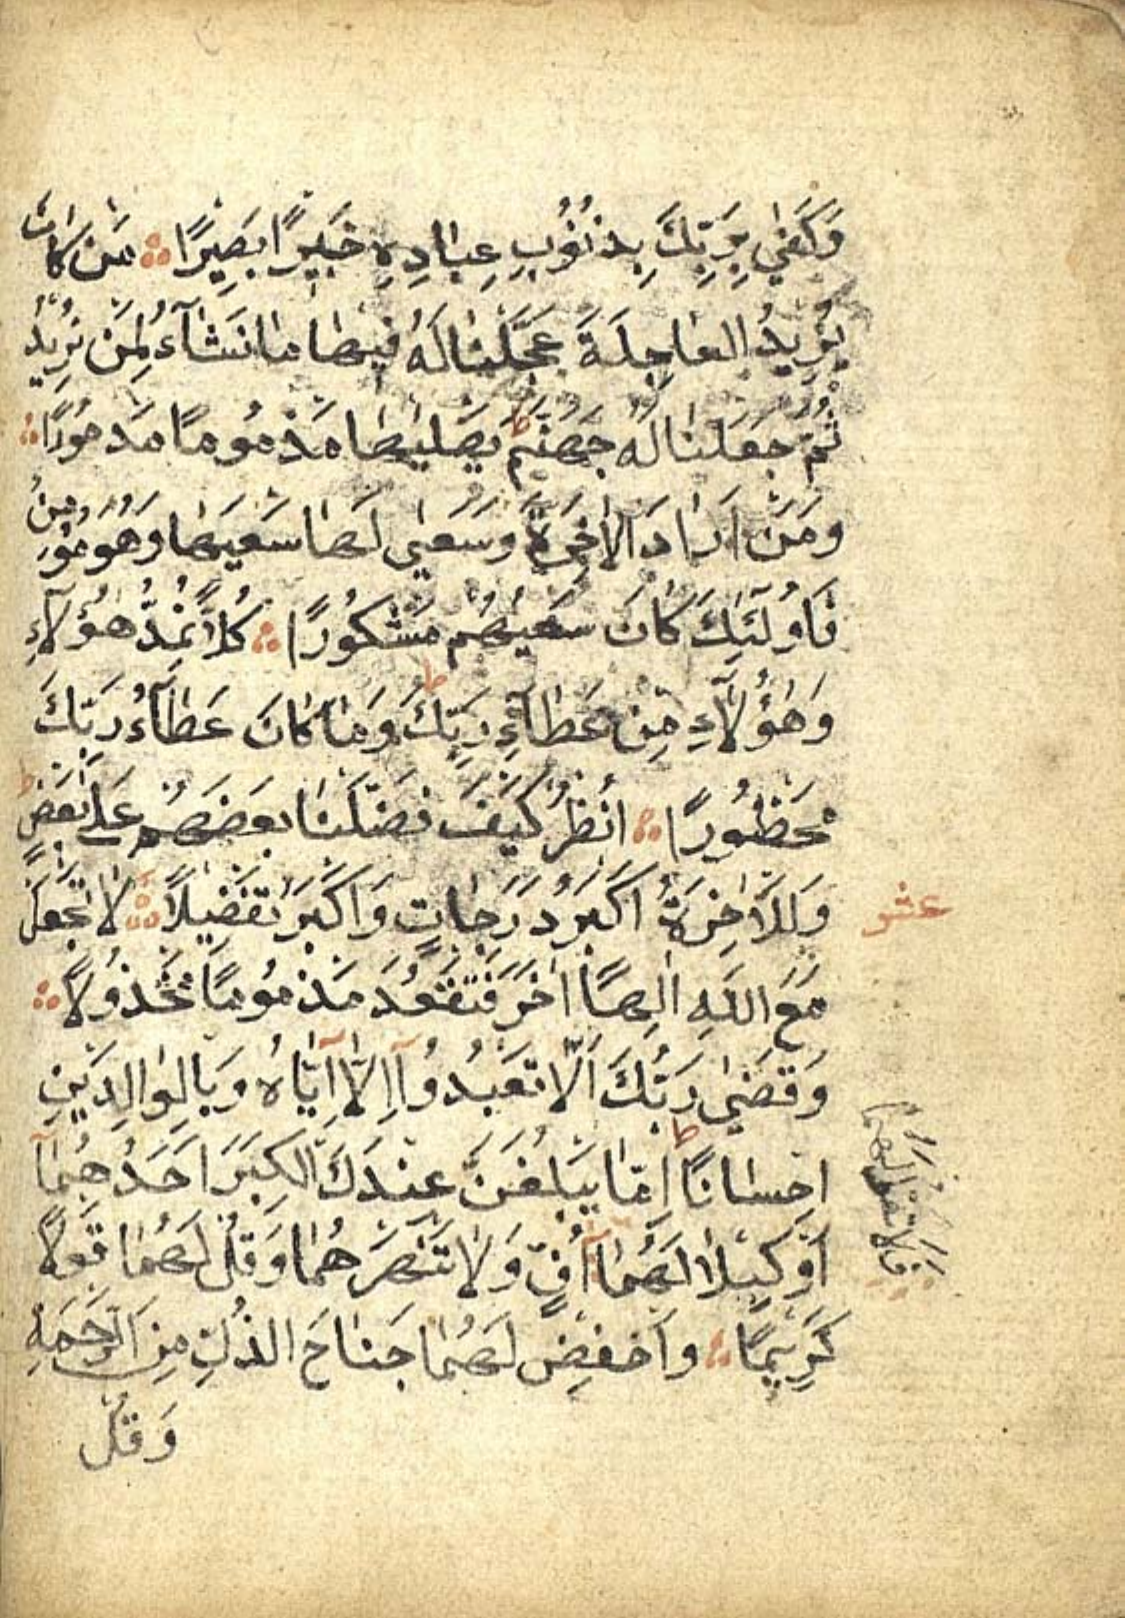 وَكَفٰى بِرَبِّكَ بِذُنُوبِ عِبَادِهِ خَبِيرًا بَصِيرًا مَنْ كَانَ
يُرِيدُ الْعَاجِلَةَ عَجَّلْنَا لَهُ فِيهَا مَا نَشَآءُ لِمَنْ نُرِيدُ
ثُمَّ جَعَلْنَا لَهُ جَهَنَّمَ ط يَصْلٰيهَا مَذْمُومًا مَدْحُورًا
وَمَنْ اَرَادَ الْاٰخِرَةَ وَسَعٰى لَهَا سَعْيَهَا وَهُوَ مُؤْمِنٌ
فَاُولٰٓئِكَ كَانَ سَعْيُهُمْ مَشْكُورًا كُلًّا نُمِدُّ هٰٓؤُلَاءِ
وَهٰٓؤُلَآءِ مِنْ عَطَآءِ رَبِّكَ ط وَمَا كَانَ عَطَآءُ رَبِّكَ
مَحْظُورًا اُنْظُرْ كَيْفَ فَضَّلْنَا بَعْضَهُمْ عَلٰى بَعْضٍ ط
وَلَلْاٰخِرَةُ اَكْبَرُ دَرَجَاتٍ وَاَكْبَرُ تَفْضِيلًا لَا تَجْعَلْ
عشر
مَعَ اللّٰهِ اِلٰهًا اٰخَرَ فَتَقْعُدَ مَذْمُومًا مَخْذُولًا
وَقَضٰى رَبُّكَ اَلَّا تَعْبُدُوٓا اِلَّآ اِيَّاهُ وَبِالْوَالِدَيْنِ
اِحْسَانًا ط اِمَّا يَبْلُغَنَّ عِنْدَكَ الْكِبَرَ اَحَدُهُمَآ
اَوْ كِلَاهُمَا لَهُمَآ اُفٍّ وَلَا تَنْهَرْهُمَا وَقُلْ لَهُمَا قَوْلًا
فَلَا تَقُلْ لَهُمَا
كَرِيمًا وَاخْفِضْ لَهُمَا جَنَاحَ الذُّلِّ مِنَ الرَّحْمَةِ
وَقُلْ